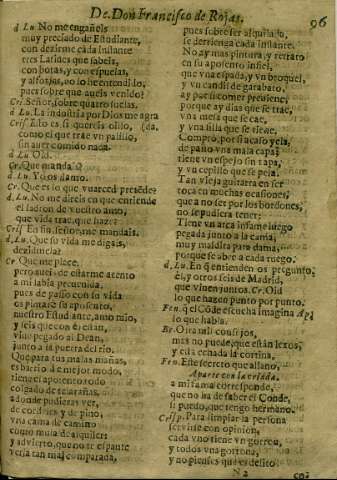 De Don Francisco de Rojas.
96
d Lu. No me engañeis
muy preciado de Estudiante,
con dezirme cada instante
que sabeis,
con botas, y con espuelas,
y alforjas, no lo he entendido,
pues sobre que aueis venido?
Cri. Señor, sobre quatro suelas.
d Lu. La industria por Dios me agra
Crisp. Esto es si quereis oillo, (da,
como el que trae vn palillo,
sin auer comido nada.
d Lu. Oid.
Cr. Que manda?
d Lu. Yo os llamo.
Cr. Que es lo que vuarced pretẽde?
d Lu. No me direis en que entiende
el ladron de vuestro amo,
que vida trae, que haze?
Crisp En fin, señor, me mandais.
d Lu. Que su vida me digais,
dezidmela?
Cr Que me place.
pero aueis de estarme atento
a mi habla
pues de passo con su vida
os pintarè su aposento,
nuestro Estudiante, amo mio,
y seis que con èl estàn,
viue pegado al Dean,
junto a la puerta del rio.
Que para tus malas mañas,
es barrio de mejor modo,
tiene el aposento todo
colgado de telarañas,
adonde pudieras ver,
de cordeles y de pino,
vna cama de camino
como mula de alquiler:
y aduierto, que no te espante
verla tan mal comparada,
pues sobre ser alquilada,
se derrienga cada instante.
No ay mas pintura, y retrato
en su aposento infiel,
que vna espada, y vn broquel,
y vn candil de garabato,
ay para comer preuiene,
porque ay dias que se trae,
vna mesa que se cae,
y vna silla que se viene.
Comprò, por si acaso yela,
de paño vna mala capa;
tiene vn espejo sin tapa,
y vn cepillo que se pela.
Tan vieja guitarra en ser
toca en muchas ocasiones,
que a no ser por los bordones,
no se pudiera tener;
Tiene vn arca infame luego
pegada junto a la cama,
muy maldita para dama,
porque se abre a cada ruego.
d. Lu. En q̃ entienden os pregunto,
èl, y otros seis de Madrid,
que viuen juntos. Cr. Oid
lo que hazen punto por punto.
Fen. q̃ el Cõde escucha imagina Ap.
lo que habla.
Br. Oirà mal consejos,
mas no puede, que estàn lexos,
y està echada la cortina.
Fen. Este secreto que allano,
Aparte con la criada.
a mi fama corresponde,
que no ha de saber el Conde,
si puedo, que tengo hermano.
Crisp. Para limpiar la persona
siruente con opinion,
cada vno tiene vn gorron,
y todos vna gorrona,
y no pienses que es delito
N 2
con